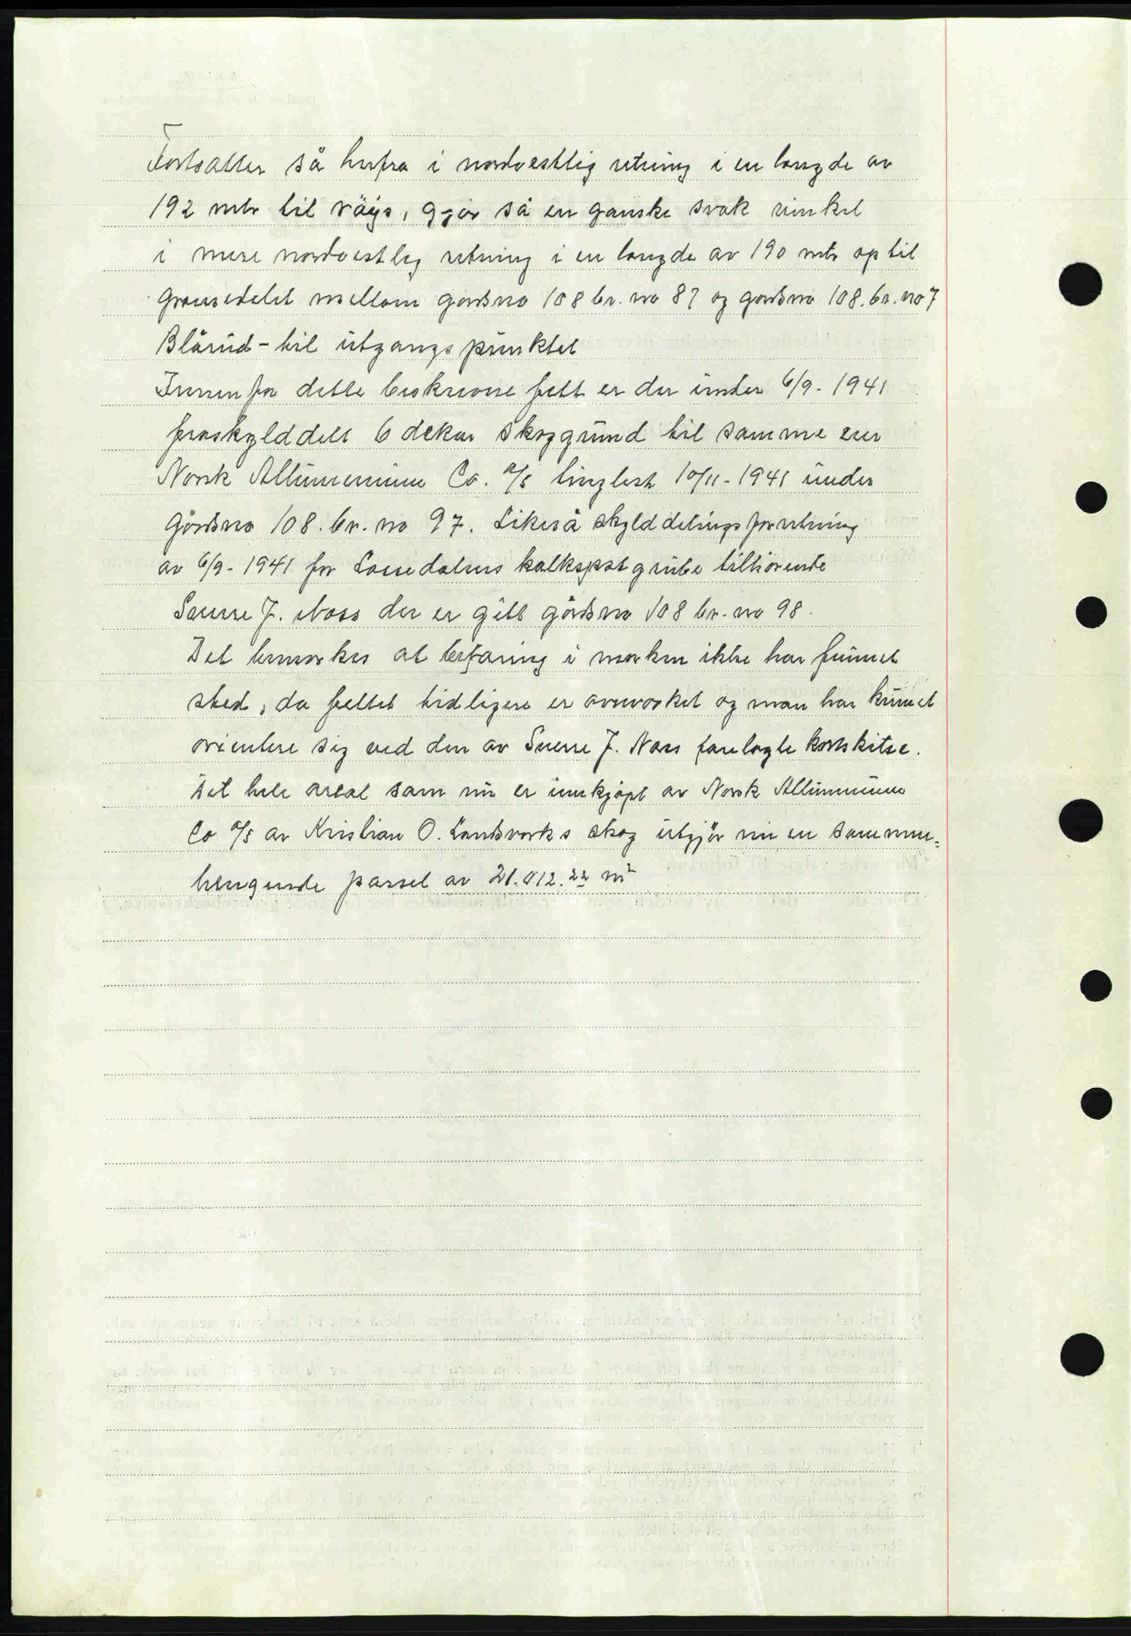 Fortsatter så herfra i nordvestlig retning i en lengde av
192 mtr til røys, gjør så en ganske svak vinkel
i mere nordvestlig retning i en lengde av 190 mtr op til
grensedelet mellem gårdsno 108 br. no 87 og gårdsno 108. br. no 7
Blårud - til utgangspunktet
Innenfor dette beskrevne felt er der under 6/9 - 1941
fraskylddelt 6 dekar skoggrund til samme eier
Norsk Alluminium Co. A/S tinglest 10/11 - 1941 under
Gårdsno 108. br. no 97. Likeså skylddelingsforretning
av 6/9 - 1941 for kalkspatgrube tilhørende
Sverre J. Næss der er gitt gårdsno 108 br. no 98.
Det bemerkes at befaring i marken ikke har funnet
sted, da feltet tidligere er avmerket og man har kunnet
orientere sig ved den av Sverre J. Næss forelagte kartskitse.
Det hele areal som nu er innkjøpt av Norsk Alluminium
Co A/S av Kristian O. Landsverks skog utgjør nu en sammen-
hengende parsel av 21.012.22 m²